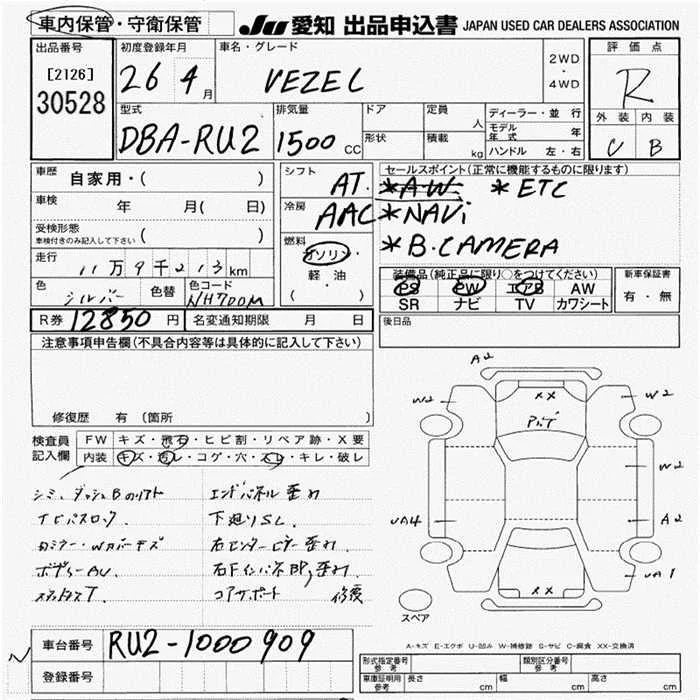 車内保管・守衛保管
JU 愛知 出品申込書 JAPAN USED CAR DEALERS ASSOCIATION
出品番号
[2126]
30528
初度登録年月
26 4月
車名・グレード
VEZEL
2WD
・
4WD
評価点
R
外装 内装
C B
型式
DBA-RU2
排気量
1500 CC
ドア
形状
定員
人
積載
kg
ディーラー・並行
モデル年式 年
ハンドル 左・右
車歴
自家用・( )
車検
年 月( 日)
受検形態
車検付きのみ記入して下さい ( )
走行
11万9千213km
色
シルバー
色替
色コード
NH700M
シフト
AT.
冷房
AAC
燃料
ガソリン・
軽油
( )
セールスポイント(正常に機能するものに限ります)
*AW *ETC
*NAVi
*B.CAMERA
装備品(純正品に限り○をつけてください)
PS PW エアB AW
SR ナビ TV カワシート
新車保証書
有・無
R券 12850 円
名変通知期限 月 日
後日品
注意事項申告欄(不具合内容等は具体的に記入して下さい)
修復歴 有 (箇所
検査員
記入欄
FW キズ・飛石・ヒビ割・リペア跡・X要
内装 キズ・汚レ・コゲ・穴・スレ・キレ・破レ
シミ、ダッシュBのリフト
ボディーAU.
エンドパネル歪み
下廻りSL.
右センターピラー歪み.
コアサポート 修復
A2
W2
XX
W2
W2
UA4
A2
XX
UA1
スペア
A-キズ E-エクボ U-凹み W-補修跡 S-サビ C-腐食 XX-交換済
車台番号
RU2-1000909
登録番号
型式指定番号
参考
類別区分番号
参考
車庫証明用
参考
長さ cm
幅 cm
高さ cm